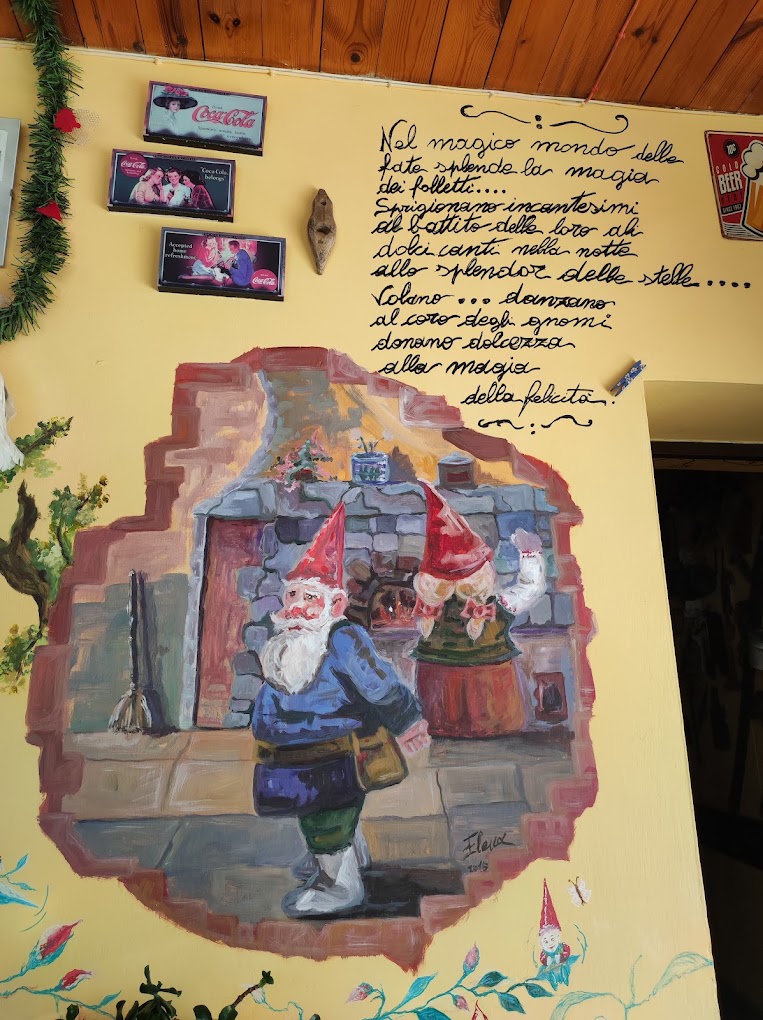 DRINK
Coca-Cola
DRINK
Coca-Cola
"Coca-Cola
belongs"
Accepted
home
refreshment
Coca-Cola
10¢
COLD
BEER
Nel magico mondo delle
fate splende la magia
dei folletti....
Sprigionano incantesimi
al battito delle loro ali
dolci canti nella notte
allo splendor delle stelle....
Volano... danzano
al coro degli gnomi
donano dolcezza
alla magia
della felicità.